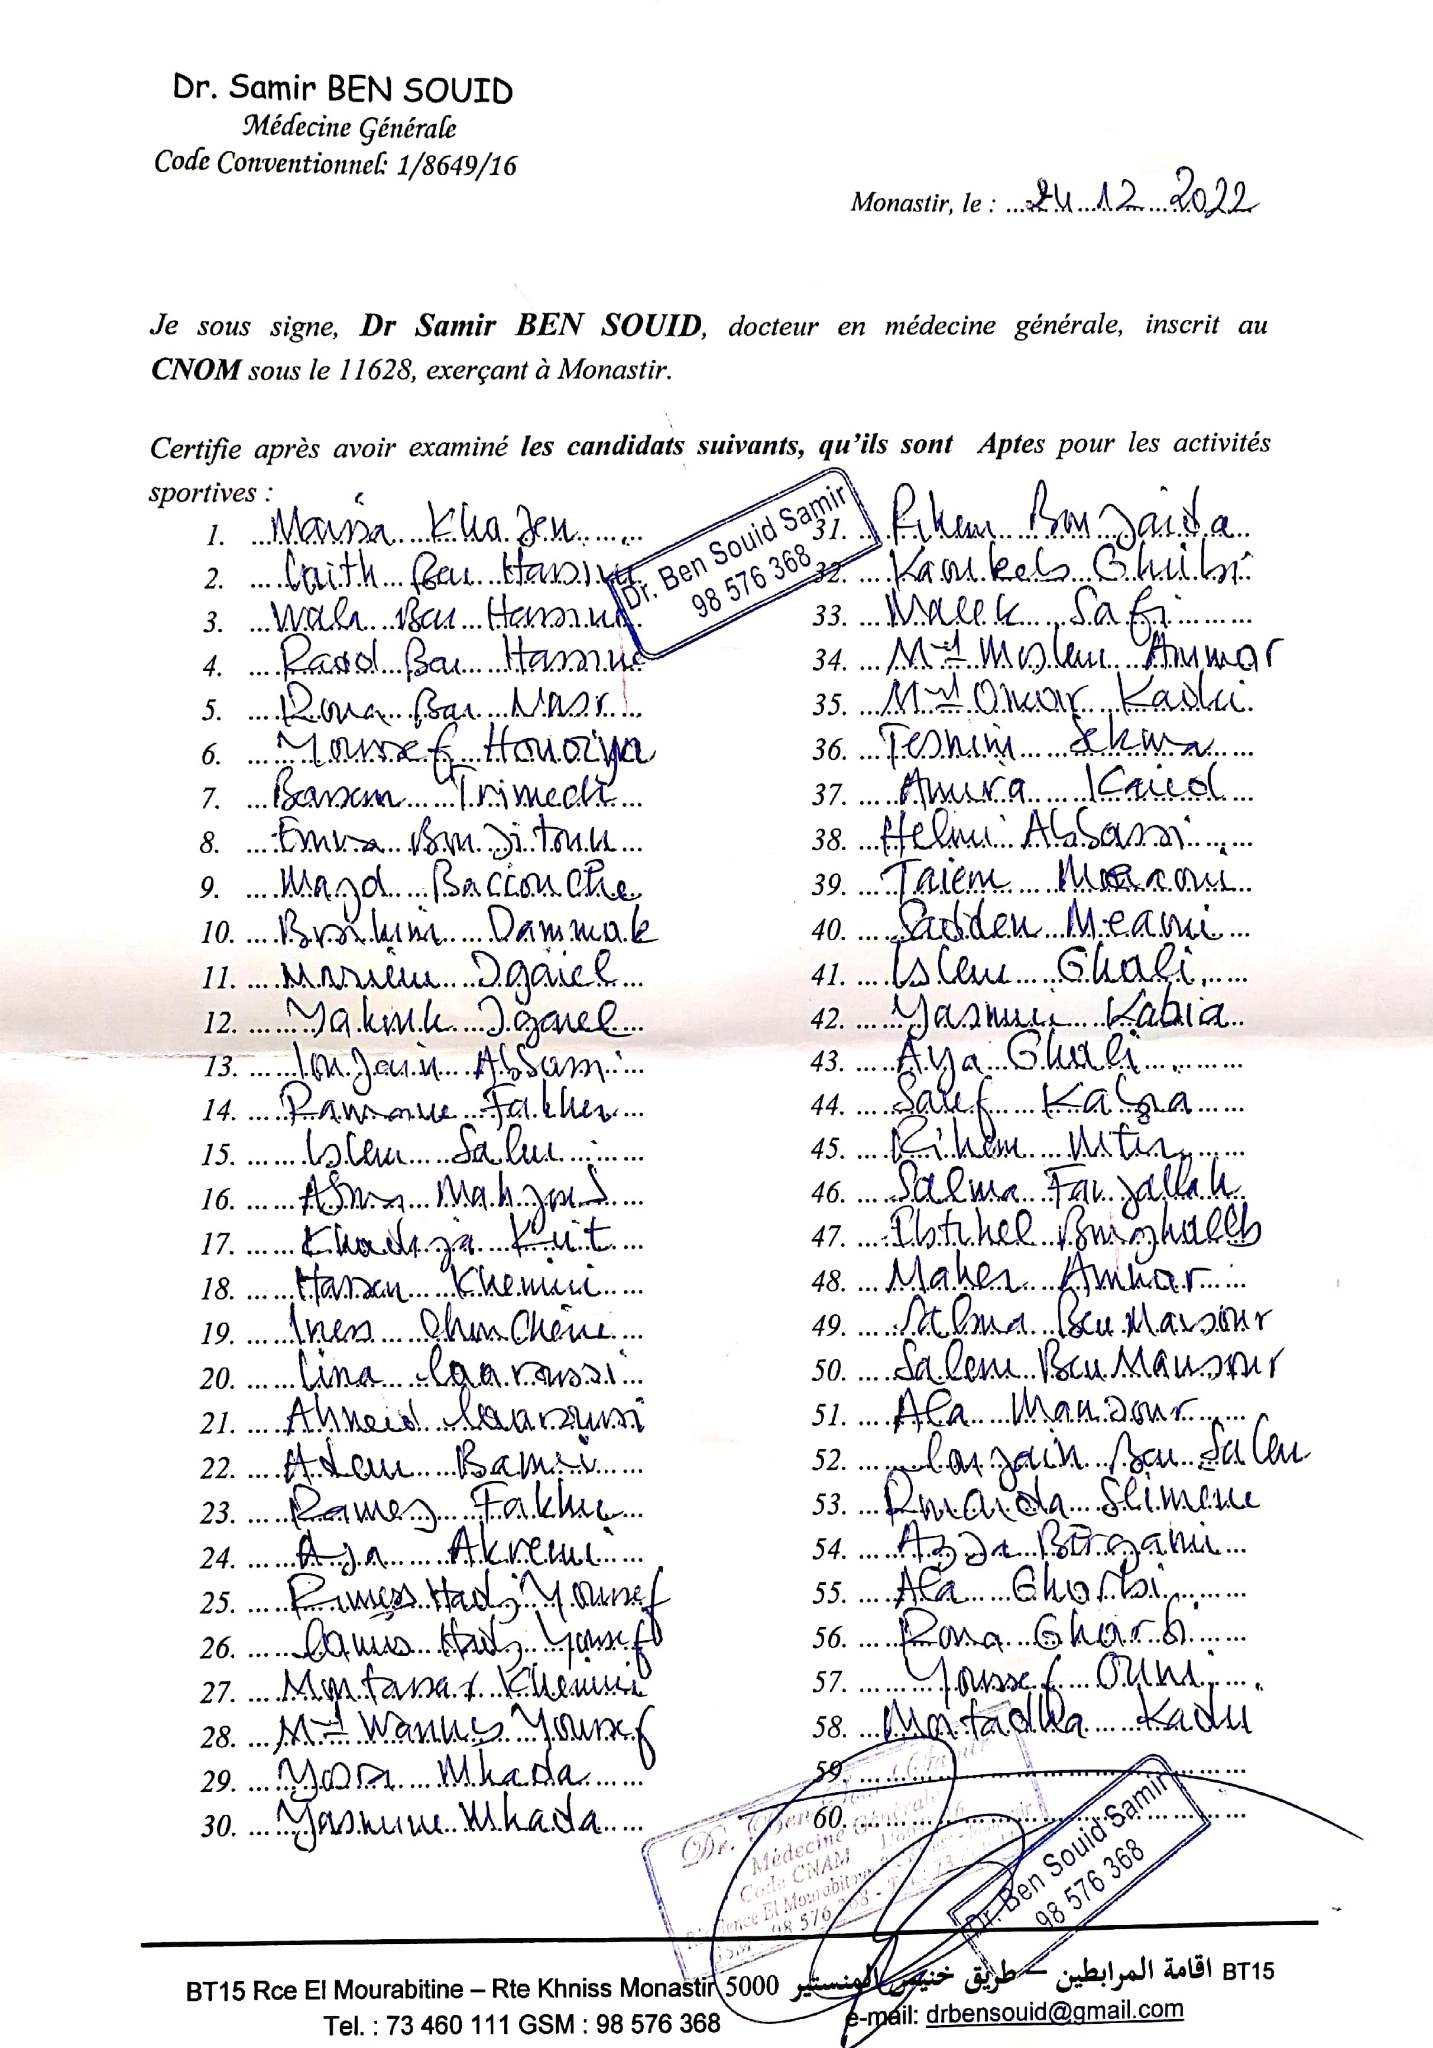 Dr. Samir BEN SOUID
Médecine Générale
Code Conventionnel: 1/8649/16
Monastir, le : 24 12 2022
Je sous signe, Dr Samir BEN SOUID, docteur en médecine générale, inscrit au
CNOM sous le 11628, exerçant à Monastir.
Certifie après avoir examiné les candidats suivants, qu'ils sont Aptes pour les activités
sportives :
1. Maissa Khajen
2. Laith Ben Hassine
3. Wala Ben Hassine
4. Raod Ben Hassine
5. Rona Ben Nasr
6. Youssef Honoziya
7. Bassem Trimech
8. Emna
9. Majd Baccouche
10. Brahim Dammak
11. Mariem Jgaiel
12. Jgaiel
13. Loujain Abbassi
14. Ramane Fakher
15. Islem Salem
16. Asma Mahjoub
17. Khadija Krit
18. Hassen Khemiri
19. Iness
20. Lina Laaroussi
21. Ahmed Laaroussi
22. Adem Bamri
23. Ramez Fakher
24. Aya Akremi
25. Hadj Youssef
26. Lamis Hadj Youssef
27. Montassar Khemiri
28. Med Wannes Youssef
29. Yosr Mkada
30. Yasmine Mkada
31. Rihem Bouzaida
32. Kaoukeb Ghribi
33. Malek Safi
34. Med Moslem Ammar
35. Med Omar Kadri
36. Tesnim Sekma
37. Amira Kaied
38. Helmi Abbassi
39. Taiem
40. Meaoui
41. Islem Ghali
42. Yasmin Kabia
43. Aya Ghali
44. Saief
45. Rihem Mtir
46. Salma Farjallah
47. Ibtihel Boughalleb
48. Maher Ammar
49. Salma Ben Mansour
50. Salem Ben Mansour
51. Ala Mansour
52. Loujain Ben Salem
53. Romaida Slimene
54. Azza Borgami
55. Ala Ghorbi
56. Rona Gharbi
57. Youssef Ouni
58. Montadha Kadri
59.
60.
Dr. Ben Souid Samir
98 576 368
Dr. Ben
Médecine Générale
Code CNAM
Résidence El Mourabitine
Dr. Ben Souid Samir
98 576 368
BT15 Rce El Mourabitine – Rte Khniss Monastir 5000 اقامة المرابطين – طريق خنيس المنستير BT15
Tel. : 73 460 111 GSM : 98 576 368 e-mail: drbensouid@gmail.com